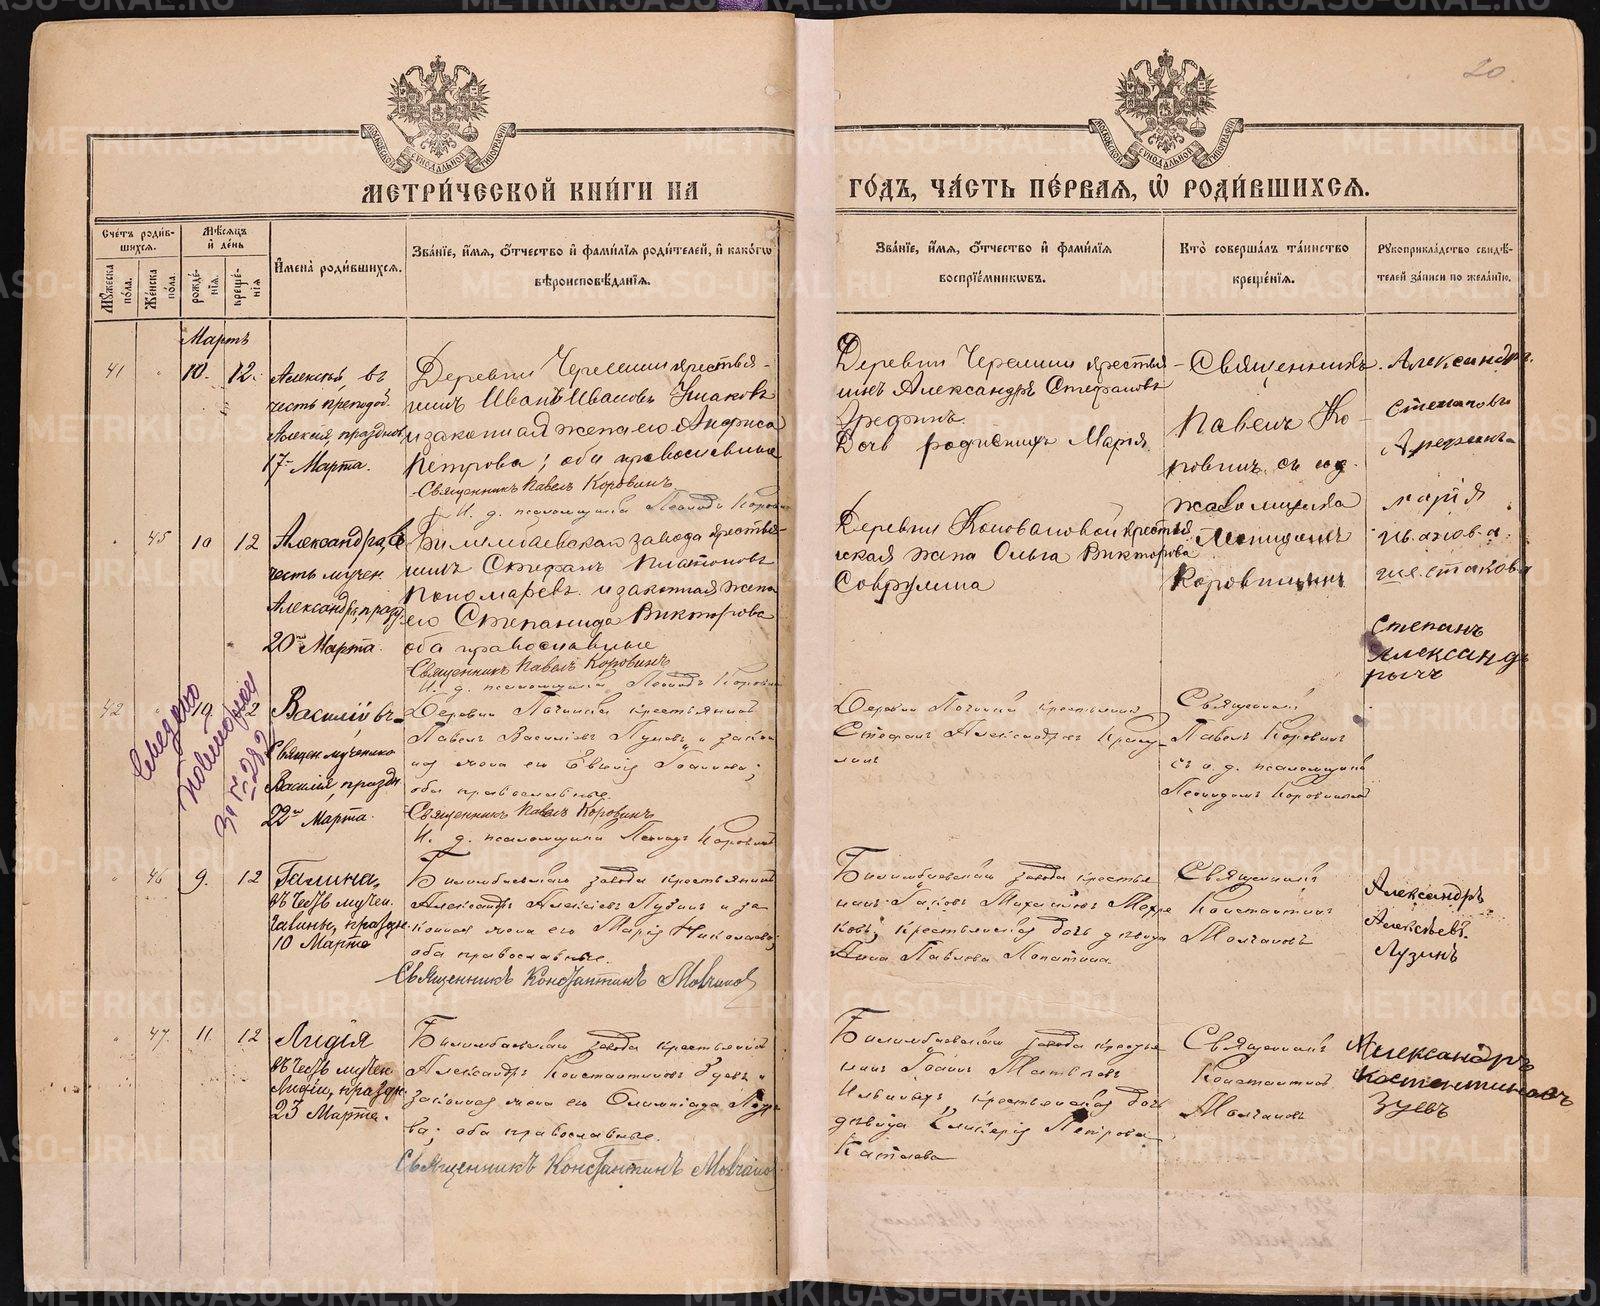 20
МОСКОВСКОЙ СѴНОДАЛЬНОЙ ТИПОГРАФІИ
МОСКОВСКОЙ СѴНОДАЛЬНОЙ ТИПОГРАФІИ
МЕТРИ́ЧЕСКОЙ КНИ́ГИ НА
ГО́ДЪ, ЧА́СТЬ ПЕ́РВАЯ, Ѡ҆ РОДИ́ВШИХСЯ.
Сче́тъ роди́в-
шихся.
Мꙋ́жеска
по́ла.
Же́нска
по́ла.
Мѣ́сяцъ
и҆ де́нь
рожде́-
нїя.
креще́-
нїя
И҆мена̀ роди́вшихся.
Зва́нїе, и҆́мя, ѻ҆́тчество и҆ фами́лїя роди́телей, и҆ како́гѡ
вѣроисповѣ́данїя.
Зва́нїе, и҆́мя, ѻ҆́тчество и҆ фами́лїя
воспрїе́мникѡвъ.
Кто̀ соверша́лъ та́инство
креще́нїя.
Рꙋкоприкла́дство свидѣ́-
телей за́писи по жела́нїю.
Мартъ
41 " 10. 12.
Алексій, въ
честь преподоб.
Алексія, празднов.
17 Марта.
Деревни Черемши крестья-
нинъ Иванъ Ивановъ
и законная жена его
Петрова; оба православные
Священникъ Павелъ Коровинъ
И. д. псаломщика Леонидъ Коровинъ
Деревни Черемши крестья
нинъ Александръ Стефановъ
Дочь Марія
Священникъ
Павелъ Ко-
ровинъ съ
псаломщика
Леонидомъ
Коровинымъ
Александръ
Степановъ
марія
иванова
шестакова
" 45 10 12
Александра, въ
честь мучен.
Александры, празд.
20 Марта.
Билимбаевскаго завода крестья-
нинъ Стефанъ Платоновъ
Пономаревъ и законная жена
его Степанида Викторова
оба православные
Священникъ Павелъ Коровинъ
И. д. псаломщика Леонидъ Коровинъ
Деревни Коноваловой крестья
нская жена Ольга Викторова
Степанъ
Александ
рычъ
42 " 10 12
Василій въ
Священ. мученика
Василія, праздн
22 Марта.
Сведено
за № 282
Деревни Починка крестьянинъ
Павелъ Васильевъ и закон
ная жена его Іоаннова;
оба православные.
Священникъ Павелъ Коровинъ
И. д. псаломщика Леонидъ Коровинъ
Деревни Починка крестьянинъ
Стефанъ Александровъ
Священникъ
Павелъ Коровинъ
съ и. д. псаломщика
Леонидомъ Коровинымъ
" 46 9. 12
Галина,
въ честь мучен.
Галины, праздн.
10 Марта
Билимбаевскаго завода крестьянинъ
Александръ Алексѣевъ Лузинъ и за
конная жена его Марія Николаева;
оба православные.
Священникъ Константинъ Молчановъ
Билимбаевскаго завода крестья
нинъ Іаковъ Михайловъ Мокре
ковъ; крестьянская дочь дѣвица
Анна Павлова Лопатина.
Священникъ
Константинъ
Молчановъ
Александръ
Алексѣевъ
Лузинъ
" 47. 11. 12
Лидія
въ честь мучен
Лидіи, праздн.
23 Марта.
Билимбаевскаго завода крестьянинъ
Александръ Константиновъ Зуевъ и
законная жена его Олимпіада
ва; оба православные.
Священникъ Константинъ Молчановъ
Билимбаевскаго завода крестья
нинъ Іоаннъ Матвѣевъ
крестьянская дочь
дѣвица Гликерія Петрова
Катаева
Священникъ
Константинъ
Молчановъ
Александръ
Костентиновъ
Зуевъ
METRIKI.GASO-URAL.RU